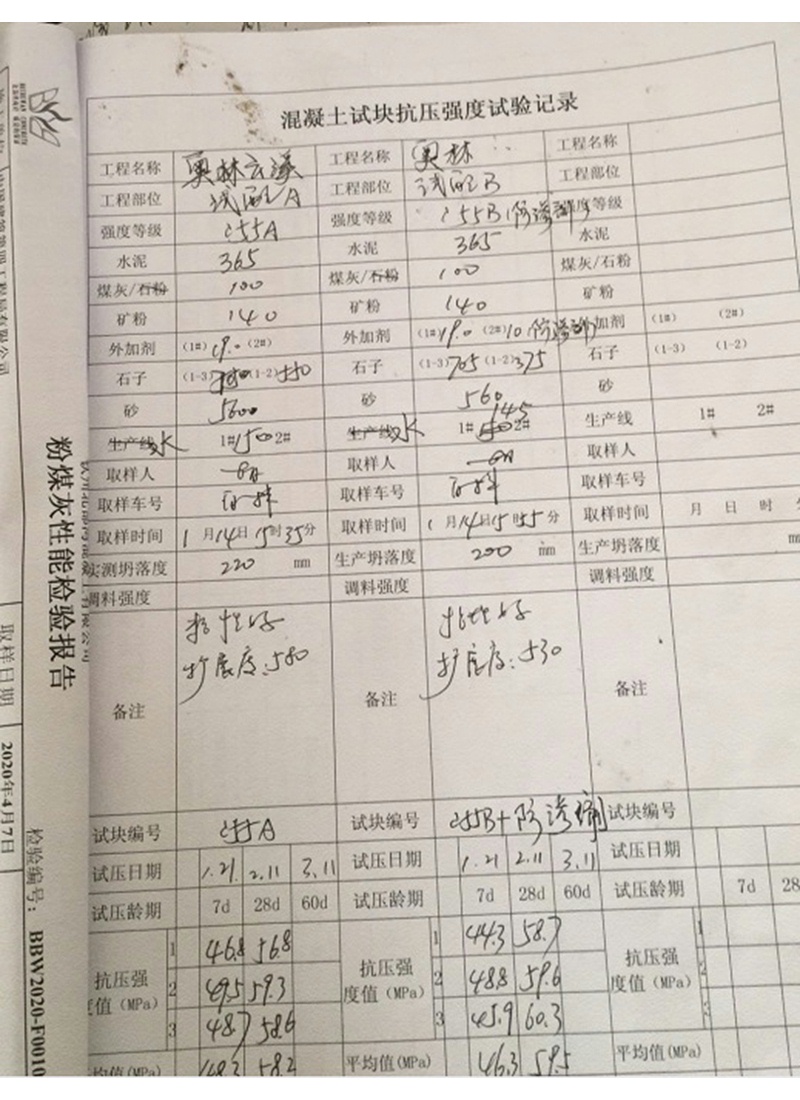 混凝土试块抗压强度试验记录
工程名称 奥林云溪 工程名称 奥林 工程名称
工程部位 试配A 工程部位 试配B 工程部位
强度等级 C55A 强度等级 C55B(防渗剂) 强度等级
水泥 365 水泥 365 水泥
煤灰/石粉 100 煤灰/石粉 100 煤灰/石粉
矿粉 140 矿粉 140 矿粉
外加剂 (1#) 19.0 (2#) 外加剂 (1#) 19.0 (2#) 10 防渗剂 外加剂 (1#) (2#)
石子 (1-3) (1-2) 石子 (1-3) 705 (1-2) 375 石子 (1-3) (1-2)
砂 砂 560 砂
生产线 水 1# 150 2# 生产线 水 1# 145 2# 生产线 1# 2#
取样人 取样人 取样人
取样车号 取样车号 取样车号
取样时间 1月14日15时35分 取样时间 1月14日15时55分 取样时间 月 日 时 分
实测坍落度 220 mm 生产坍落度 200 mm 生产坍落度 mm
调料强度 调料强度 调料强度
备注 备注 备注
扩展度:580 扩展度:530
试块编号 C55A 试块编号 C55B+防渗剂 试块编号
试压日期 1.21 2.11 3.11 试压日期 1.21 2.11 3.11 试压日期
试压龄期 7d 28d 60d 试压龄期 7d 28d 60d 试压龄期 7d 28
抗压强度值(MPa) 抗压强度值(MPa) 抗压强度值(MPa)
1 46.8 56.8 1 44.3 58.7 1
2 49.5 59.3 2 48.8 59.6 2
3 48.7 58.6 3 45.9 60.3 3
平均值(MPa) 48.3 58.2 平均值(MPa) 46.3 59.5 平均值(MPa)
粉煤灰性能检验报告
检验编号：BBW2020-F0010
取样日期 2020年4月7日